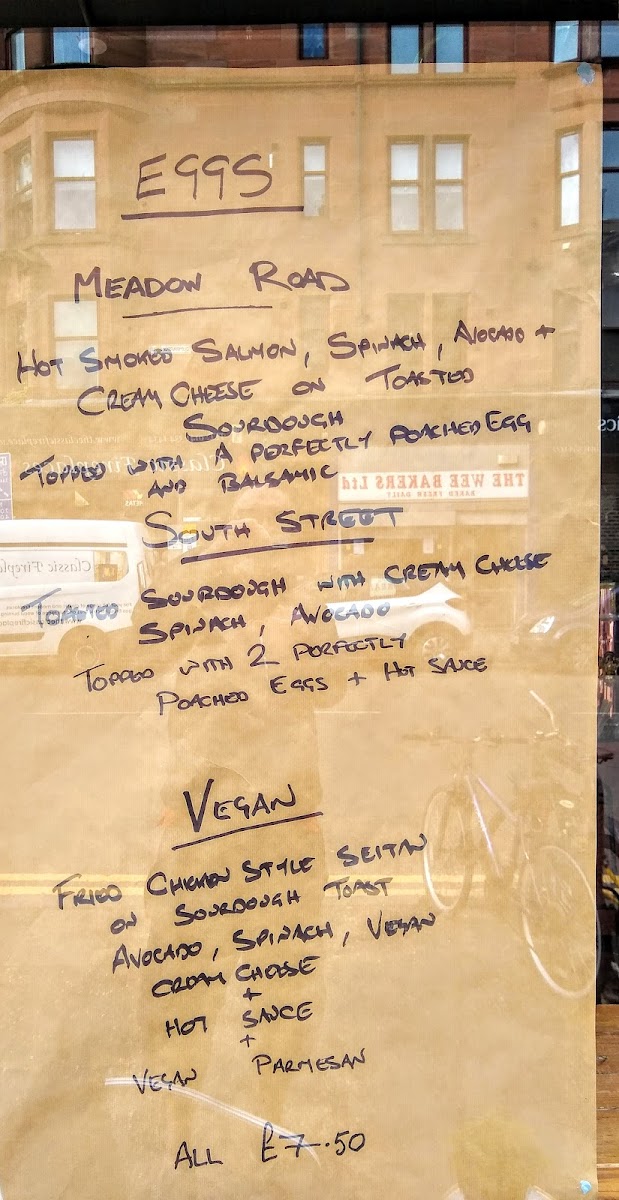 EGGS
MEADOW ROAD
HOT SMOKED SALMON, SPINACH, AVOCADO +
CREAM CHEESE ON TOASTED
SOURDOUGH
TOPPED WITH A PERFECTLY POACHED EGG
AND BALSAMIC
THE WEE BAKERS Ltd
BAKED FRESH DAILY
SOUTH STREET
Classic Firepla
TOASTED SOURDOUGH WITH CREAM CHEESE
SPINACH, AVOCADO
TOPPED WITH 2 PERFECTLY
POACHED EGGS + HOT SAUCE
VEGAN
FRIED CHICKEN STYLE SEITAN
ON SOURDOUGH TOAST
AVOCADO, SPINACH, VEGAN
CREAM CHEESE
+
HOT SAUCE
+
VEGAN PARMESAN
ALL £7.50